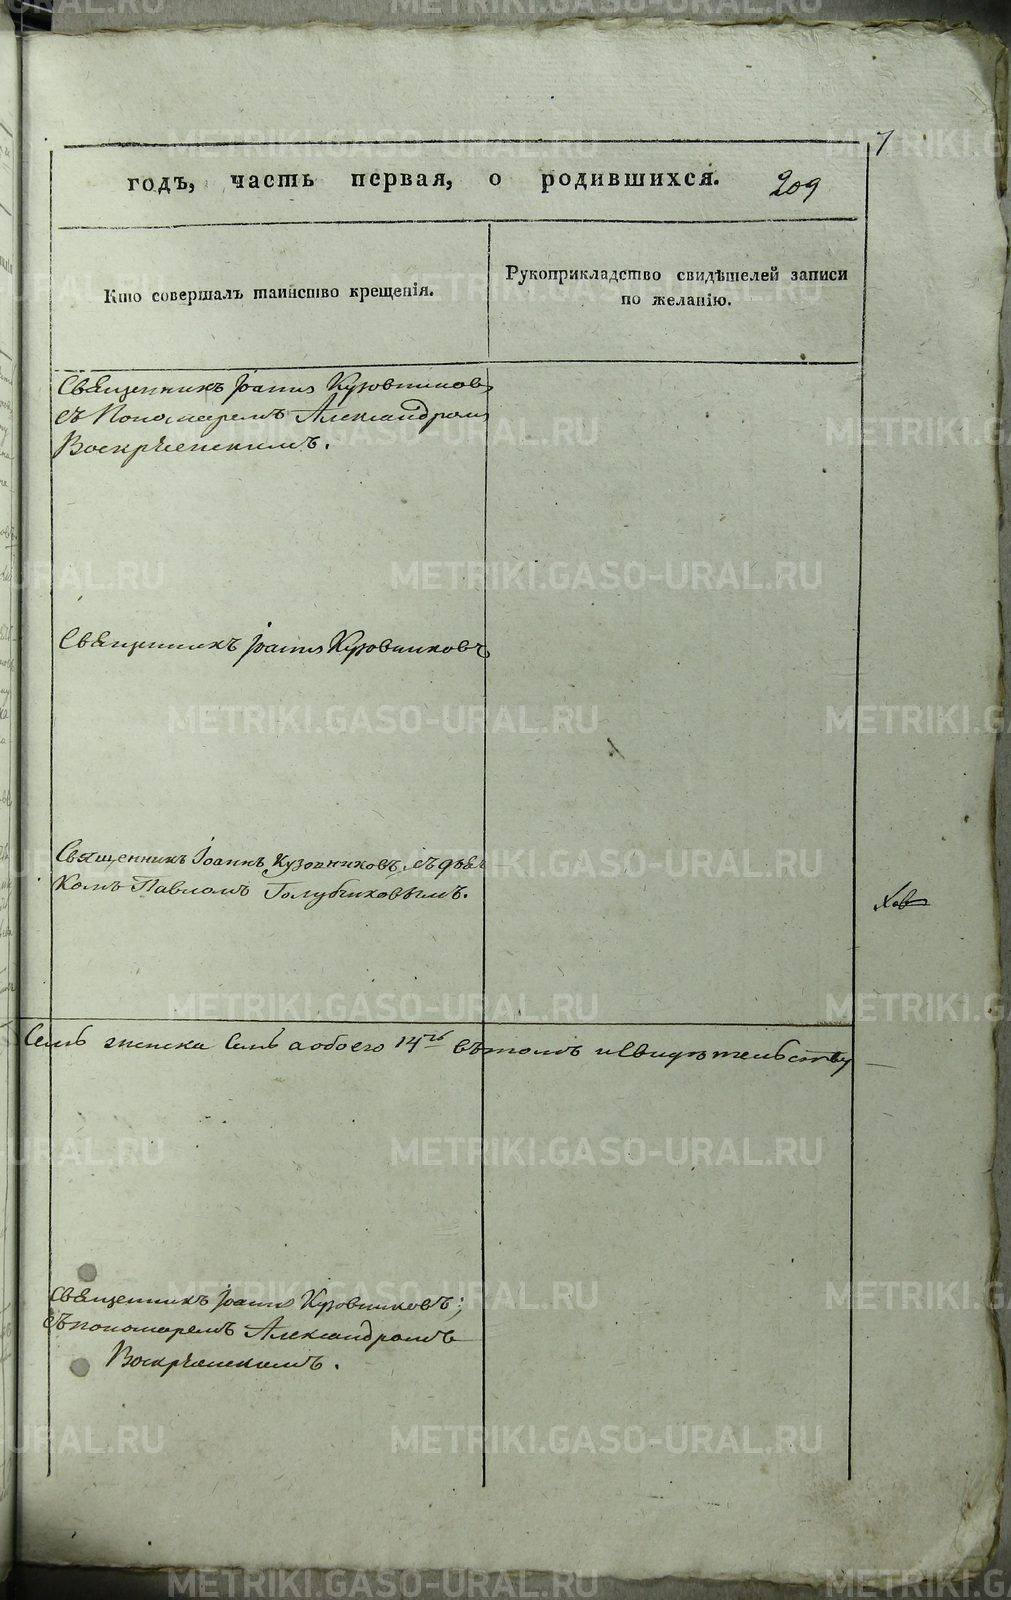 7
годъ, часть первая, о родившихся. 209
Кто совершалъ таинство крещенія.
Рукоприкладство свидѣтелей записи
по желанію.
Священникъ Іоаннъ Кузовниковъ
съ Пономаремъ Александромъ
Воскресенскимъ.
Священникъ Іоаннъ Кузовниковъ
Священникъ Іоаннъ Кузовниковъ, съ дьяч
комъ Павломъ Голубчиковымъ.
Семь женска Семь а обоего 14ть въ томъ и свидѣтельству
Священникъ Іоаннъ Кузовниковъ;
съ пономаремъ Александромъ
Воскресенскимъ.
METRIKI.GASO-URAL.RU